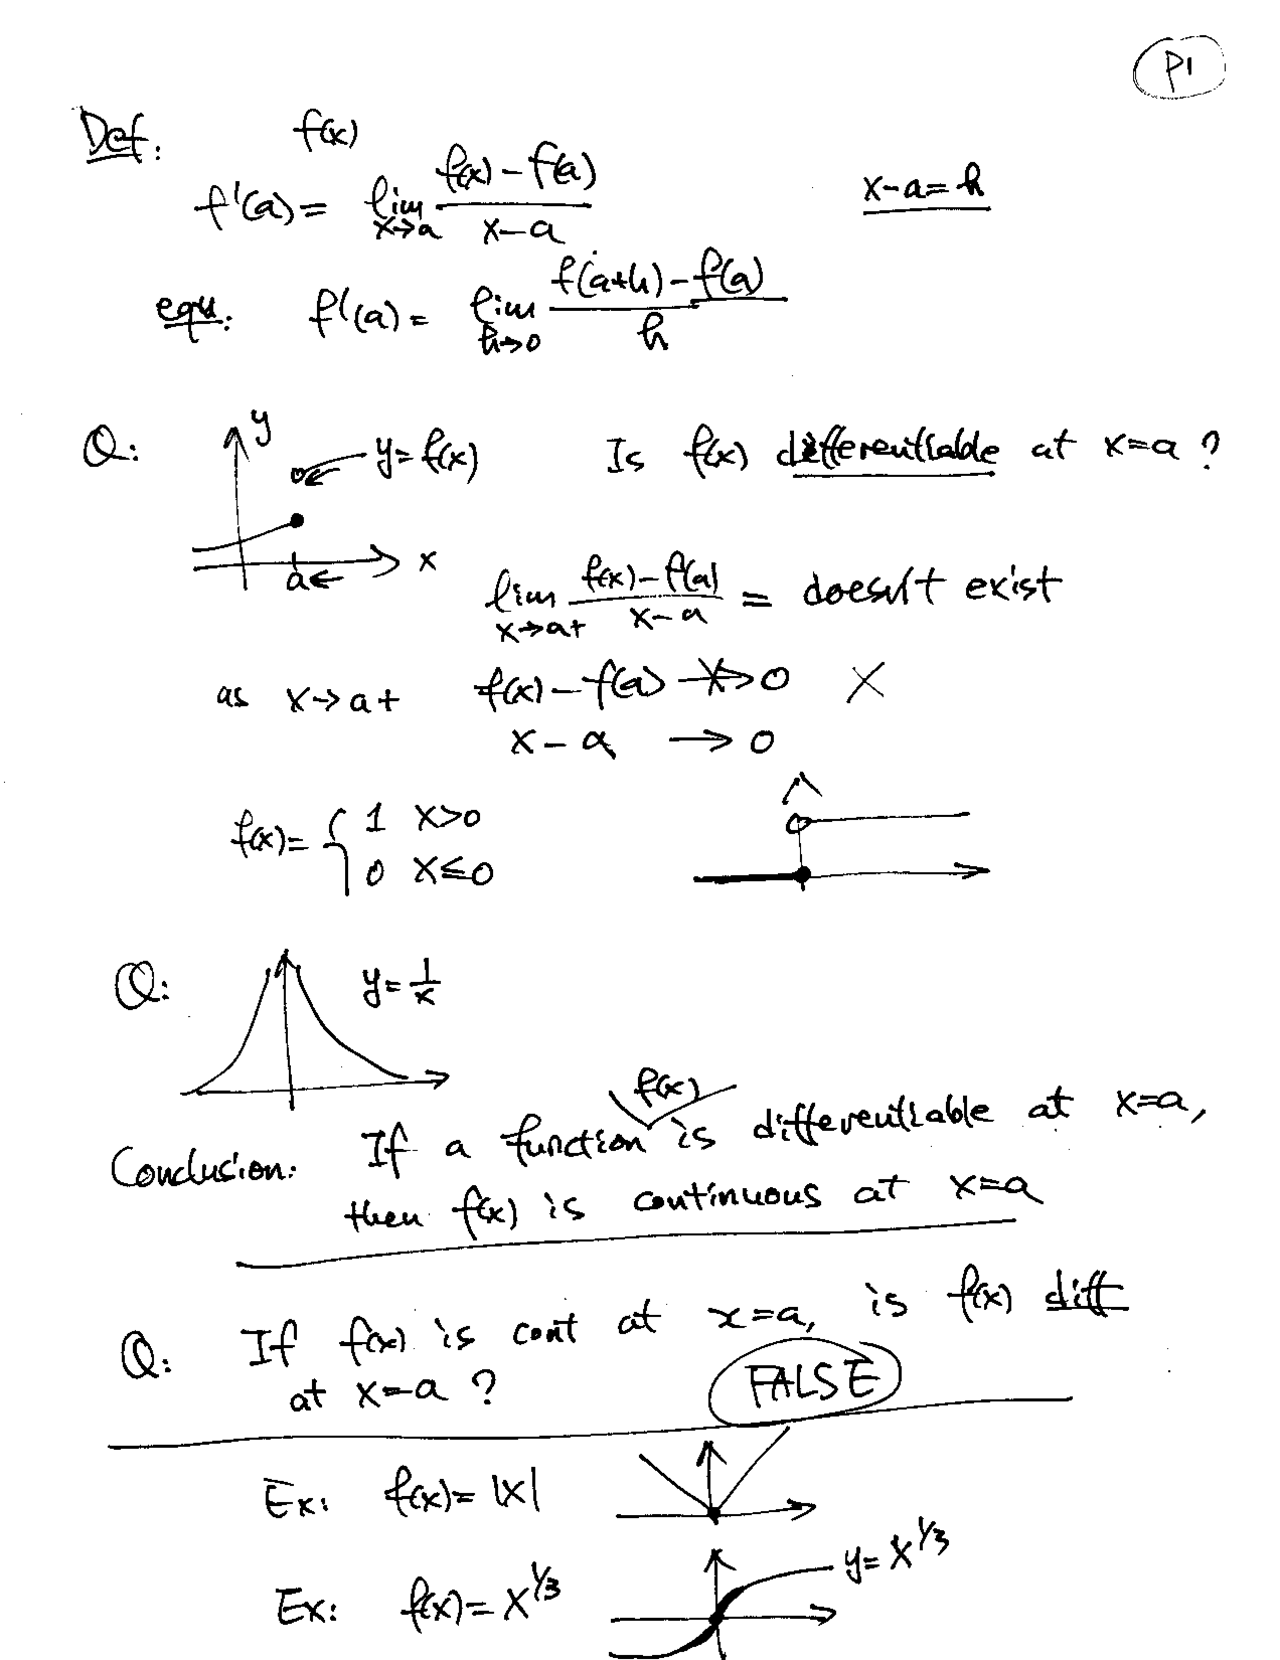 P1
Def: f(x)
f'(a) = lim x→a (f(x) - f(a))/(x-a)
x-a=h
equ: f'(a) = lim h→0 (f(a+h) - f(a))/h
Q: y y=f(x) Is f(x) differentiable at x=a ?
a x
lim x→a+ (f(x)-f(a))/(x-a) = doesn't exist
as x→a+ f(x)-f(a) ↛ 0 ×
x-a → 0
f(x)= { 1 x>0
0 x≤0
Q: y=1/x
f(x)
Conclusion: If a function is differentiable at x=a,
then f(x) is continuous at x=a
Q: If f(x) is cont at x=a, is f(x) diff
at x=a ? FALSE
Ex: f(x)=|x|
Ex: f(x)=x^1/3 y=x^1/3